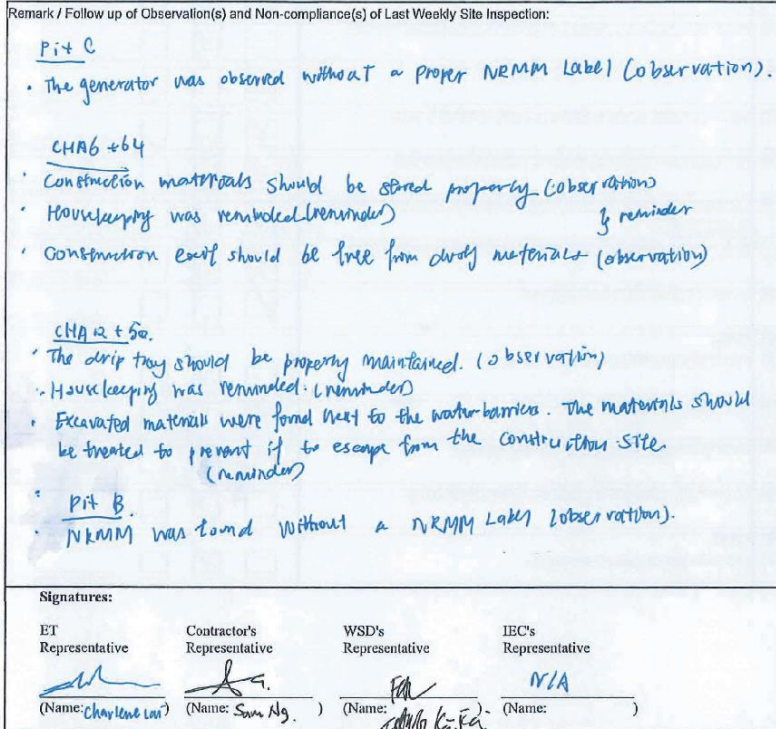 Remark / Follow up of Observation(s) and Non-compliance(s) of Last Weekly Site Inspection:
Pit C
• The generator was observed without a proper NRMM Label (observation).
CHA6 +64
• Construction materials should be stored properly (observation)
• Housekeeping was reminded (reminder)
& reminder
• Construction exit should be free from dusty materials (observation)
CHA 12 + 50.
• The drip tray should be properly maintained. (observation)
• Housekeeping was reminded. (reminder)
• Excavated materials were found next to the water barriers. The materials should
be treated to prevent it to escape from the construction site.
(reminder)
• Pit B.
• NRMM was found without a NRMM Label (observation).
Signatures:
ET Contractor's WSD's IEC's
Representative Representative Representative Representative
N/A
(Name: Charlene Lai) (Name: Sam Ng. ) (Name: Ka Kei ) (Name: )